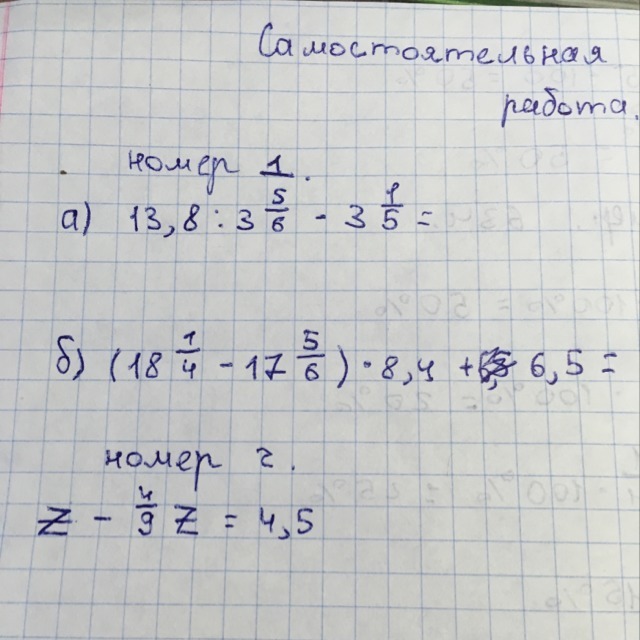 Самостоятельная
работа.
номер 1.
а) 13,8 : 3 5/6 - 3 1/5 =
б) (18 1/4 - 17 5/6) · 8,4 + 6,5 =
номер 2.
z - 4/9 z = 4,5